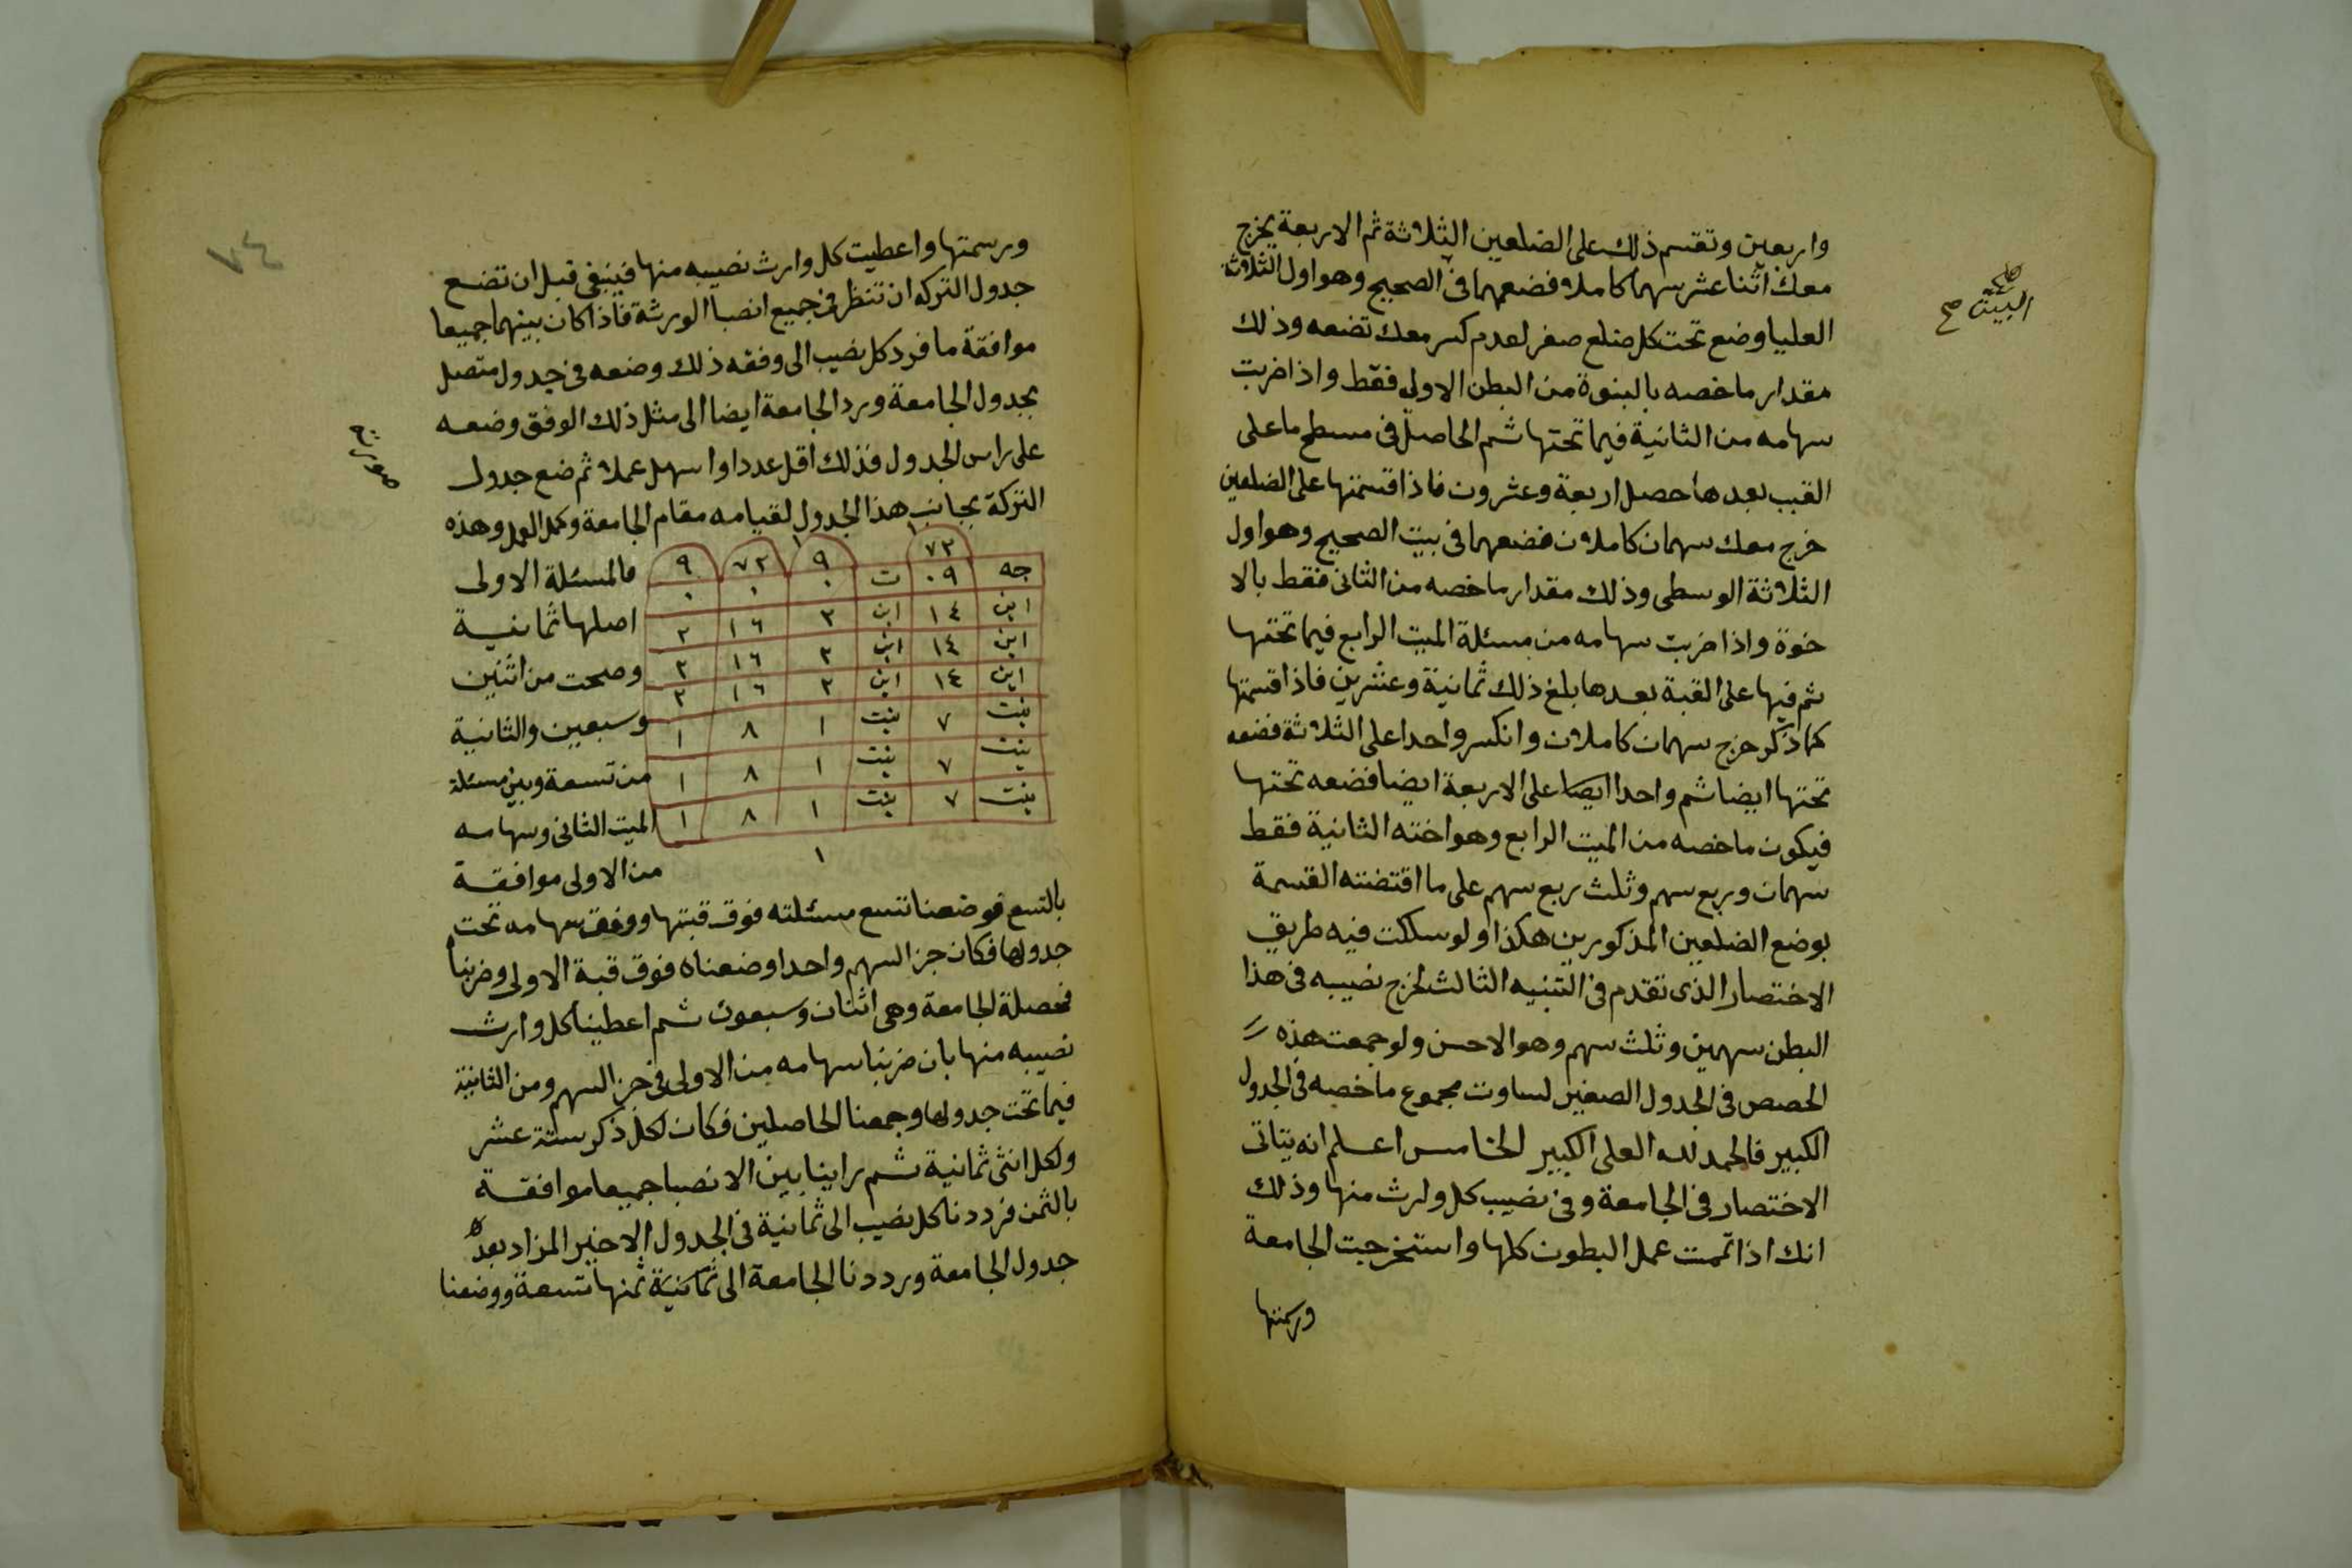 واربعين وتقسم ذلك على الضلعين الثلاثة ثم الاربعة يخرج
معك اثنا عشر سهما كاملا فضعهما فى الصحيح وهو اول الثلاثة
البيت صح
العليا وضع تحت كل ضلع صفر لعدم كسر معك تضعه وذلك
مقدار ما خصه بالبنوة من البطن الاولى فقط واذا ضربت
سهامه من الثانية فيما تحتها ثم الحاصل فى مسطح ما على
القبب بعدها حصل اربعة وعشرون فاذا قسمتها على الضلعين
خرج معك سهمان كاملان فضعهما فى بيت الصحيح وهو اول
الثلاثة الوسطى وذلك مقدار ما خصه من الثانى فقط بالا
خوة واذا ضربت سهامه من مسئلة الميت الرابع فيما تحتها
ثم فيها على القبة بعدها بلغ ذلك ثمانية وعشرين فاذا قسمتها
كما ذكر خرج سهمان كاملان وانكسر واحدا على الثلاثة فضعه
تحتها ايضا ثم واحدا ايضا على الاربعة ايضا فضعه تحتها
فيكون ما خصه من الميت الرابع وهو اخته الثانية فقط
سهمان وربع سهم وثلث ربع سهم على ما اقتضته القسمة
بوضع الضلعين المذكورين هكذا ولو سلكت فيه طريق
الاختصار الذى تقدم فى التنبيه الثالث لخرج نصيبه فى هذا
البطن سهمين وثلث سهم وهو الاحسن ولو جمعت هذه
الحصص فى الجدول الصغير لساوت مجموع ما خصه فى الجدول
الكبير فالحمد لله العلى الكبير الخامس اعلم انه يتاتى
الاختصار فى الجامعة وفى نصيب كل وارث منها وذلك
انك اذا تممت عمل البطون كلها واستخرجت الجامعة
ورسمتها
٧٤
ورسمتها واعطيت كل وارث نصيبه منها فينبغى قبل ان تضع
جدول التركه ان تنظر فى جميع انصبا الورثة فاذا كان بينهما جميعا
موافقة ما فرد كل نصيب الى وفقه ذلك وضعه فى جدول متصل
بجدول الجامعة ورد الجامعة ايضا الى مثل ذلك الوفق وضعه
على راس الجدول فذلك اقل عددا واسهل عملا ثم ضع جدول
التركة بجانب هذا الجدول لقيامه مقام الجامعة وكمل العمل وهذه
١ ١
٧٢ ٩ ٧٢ ٩
جه ٠٩ ت ٠ ٠ ٠
ابن ١٤ ابن ٢ ١٦ ٢
ابن ١٤ ابن ٢ ١٦ ٢
ابن ١٤ ابن ٢ ١٦ ٢
بنت ٧ بنت ١ ٨ ١
بنت ٧ بنت ١ ٨ ١
بنت ٧ بنت ١ ٨ ١
١
فالمسئلة الاولى
اصلها ثمانية
وصحت من اثنين
وسبعين والثانية
من تسعة وبين مسئلة
الميت الثانى وسهامه
من الاولى موافقة
بالتسع فوضعنا تسع مسئلته فوق قبتها ووفق سهامه تحت
جدولها فكان جز السهم واحدا وضعناه فوق قبة الاولى وضربنا
فحصلة الجامعة وهى اثنان وسبعون ثم اعطينا كل وارث
نصيبه منها بان ضربنا سهامه من الاولى فى جز السهم ومن الثانية
فيما تحت جدولها وجمعنا الحاصلين فكان لكل ذكر ستة عشر
ولكل انثى ثمانية ثم راينا بين الانصبا جميعا موافقة
بالثمن فرددنا كل نصيب الى ثمانية فى الجدول الاخير المزاد بعد
جدول الجامعة ورددنا الجامعة الى ثمانية ثمنها تسعة ووضعنا